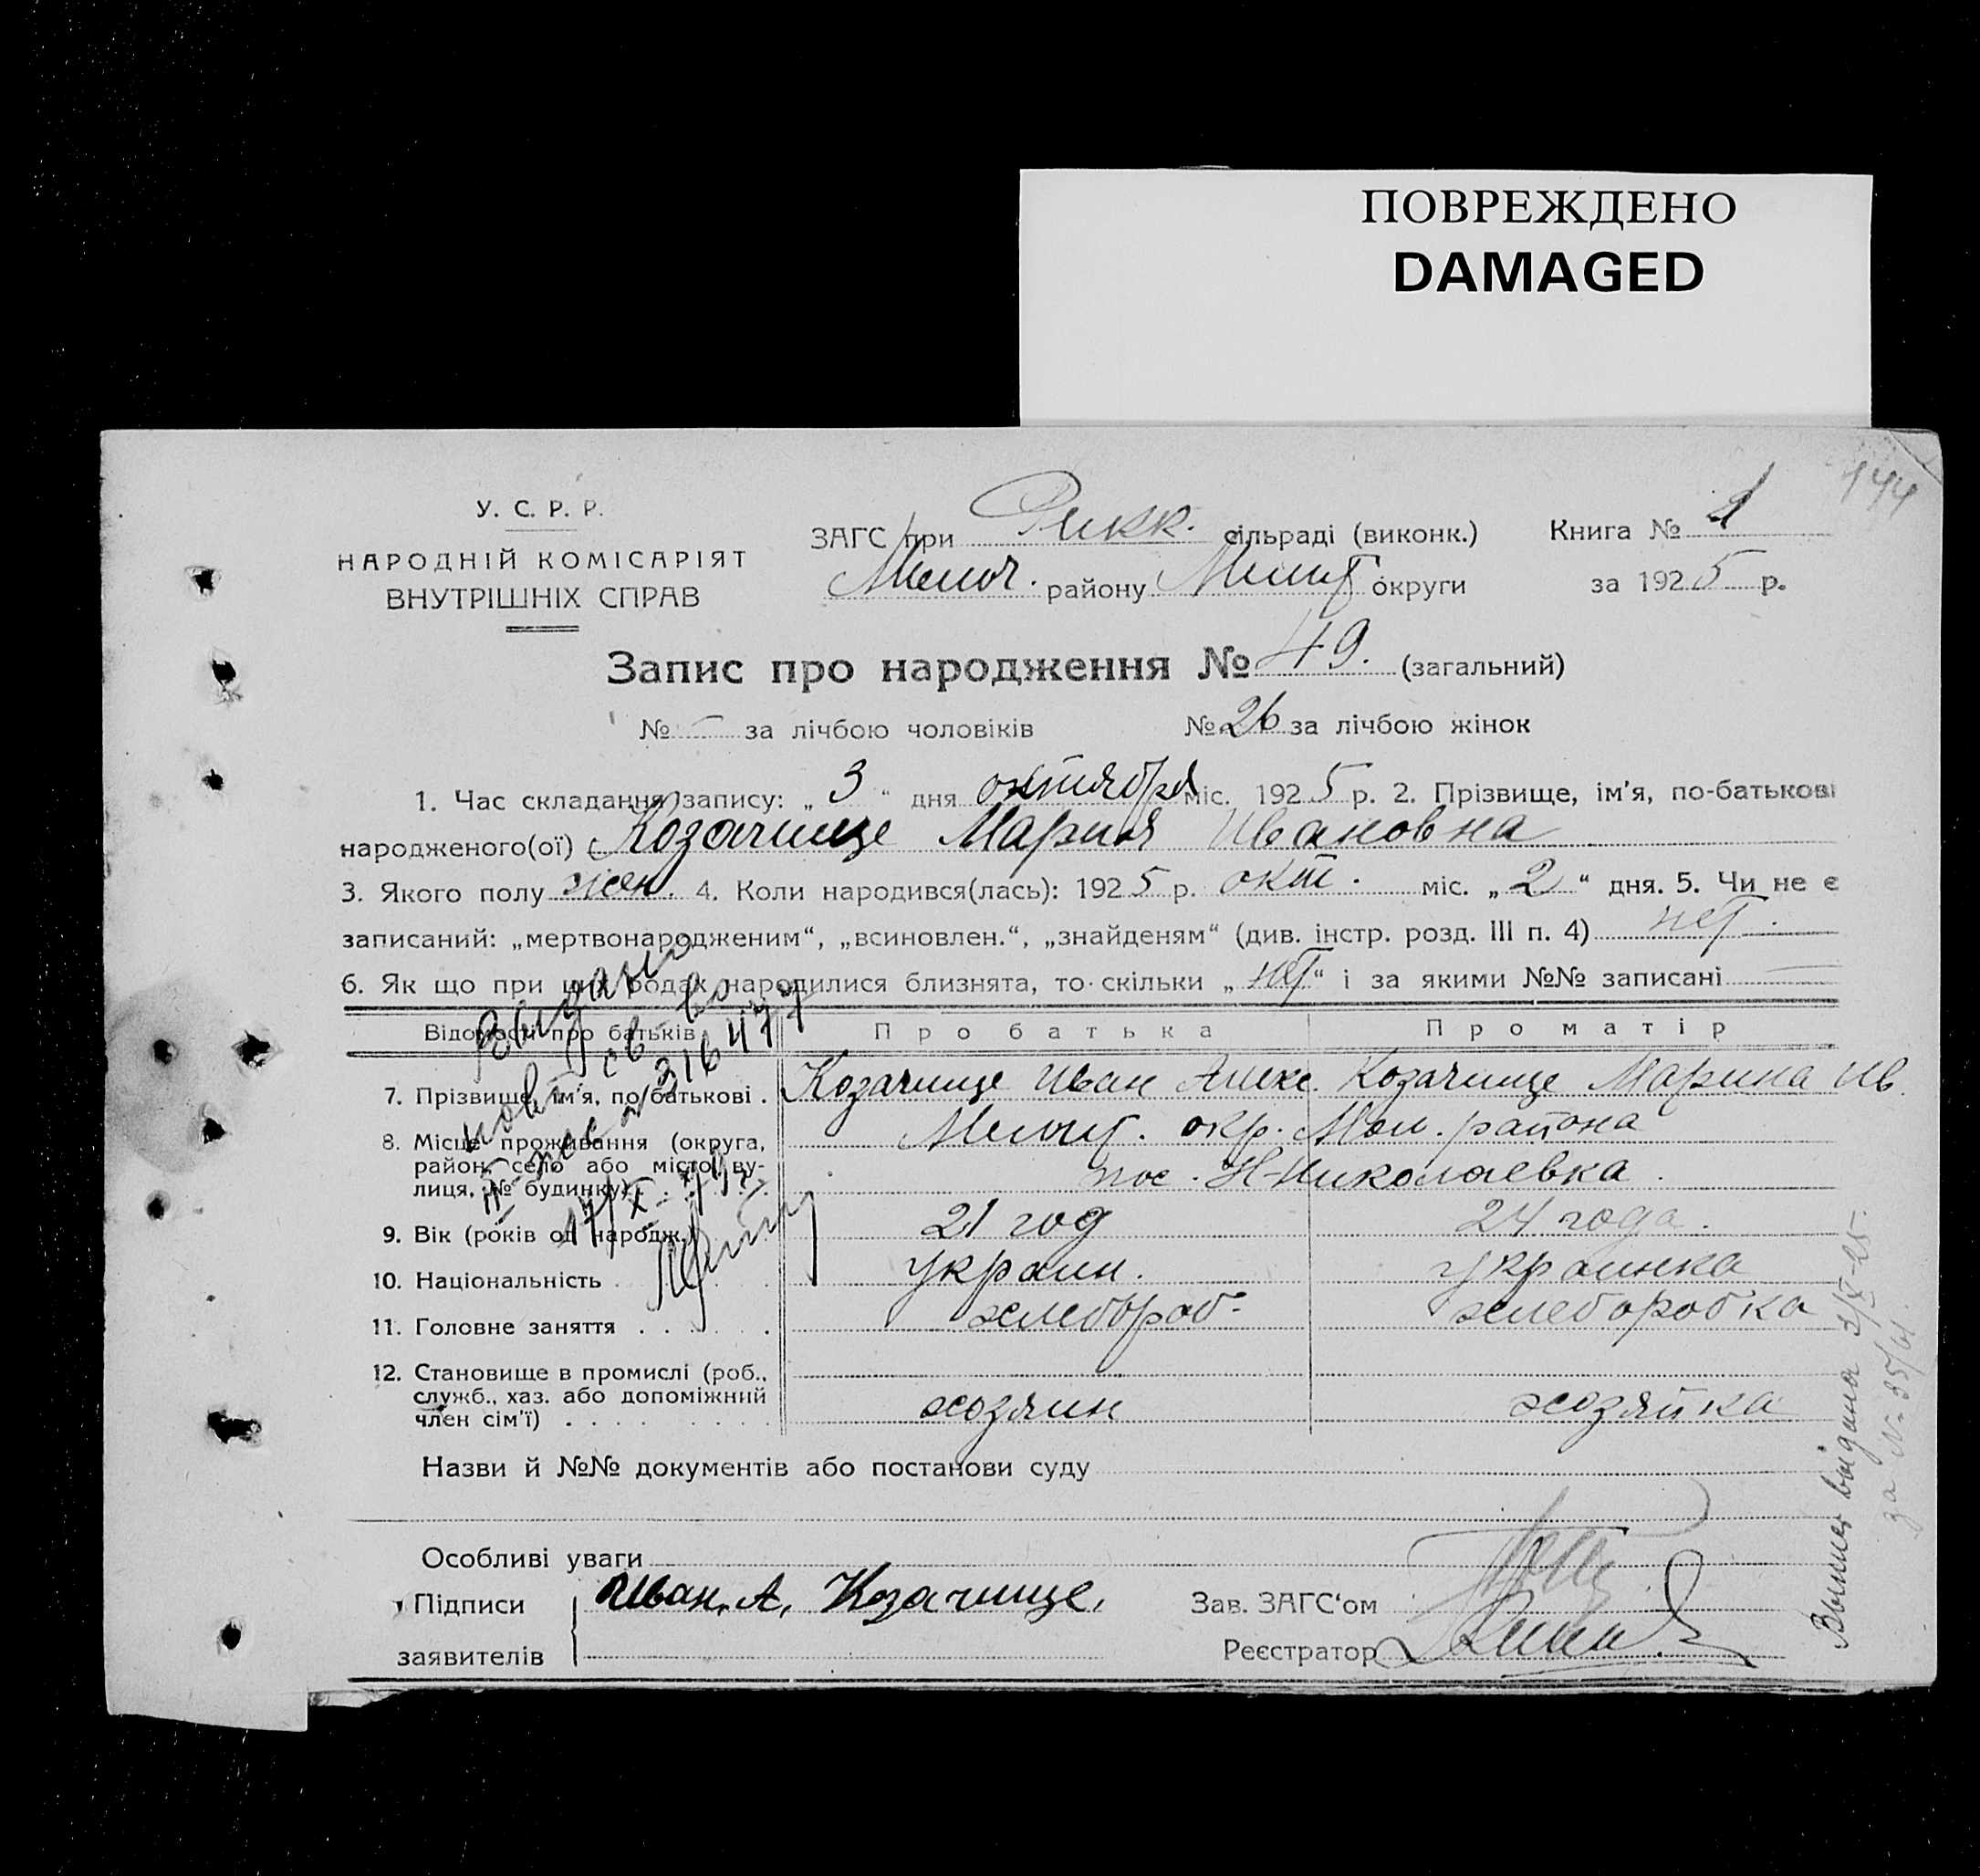 ПОВРЕЖДЕНО
DAMAGED
144
У. С. Р. Р.
НАРОДНІЙ КОМІСАРІЯТ
ВНУТРІШНІХ СПРАВ
ЗАГС при Рикк. сільраді (виконк.) Книга № 1
району Мелит округи за 1925 р.
Запис про народження № 49. (загальний)
№ – за лічбою чоловіків № 26 за лічбою жінок
1. Час складання запису: „ 3 “ дня октября міс. 1925 р. 2. Прізвище, ім'я, по-батькові
народженого(ої) Козачище Мария Ивановна
3. Якого полу жен. 4. Коли народився(лась): 1925 р. окт. міс. „ 2 “ дня. 5. Чи не є
записаний: „мертвонародженим“, „всиновлен.“, „знайденям“ (див. інстр. розд. III п. 4) нет.
6. Як що при цих родах народилися близнята, то скільки „ нет “ і за якими №№ записані
Відомості про батьків Про батька Про матір
7. Прізвище, ім'я, по батькові . Козачище Иван Алекс. Козачище Марина Ив.
8. Місце проживання (округа, Мелит. окр. Мол. района
район, село або місто, ву-
лиця, № будинку) пос. Н-Николаевка.
9. Вік (років од народж.) 21 год 24 года.
10. Національність украин. украинка
11. Головне заняття . . . . . хлебороб- хлеборобка
12. Становище в промислі (роб.,
служб., хаз. або допоміжний
член сім'ї) . . . . . . . . . хозяин хозяйка
Назви й №№ документів або постанови суду
Особливі уваги
Підписи Иван. А. Козачище. Зав. ЗАГС'ом
заявителів Реєстратор
Выдано
повт. св-во
316477
Выпись выдана 3/X-25.
за № 35/